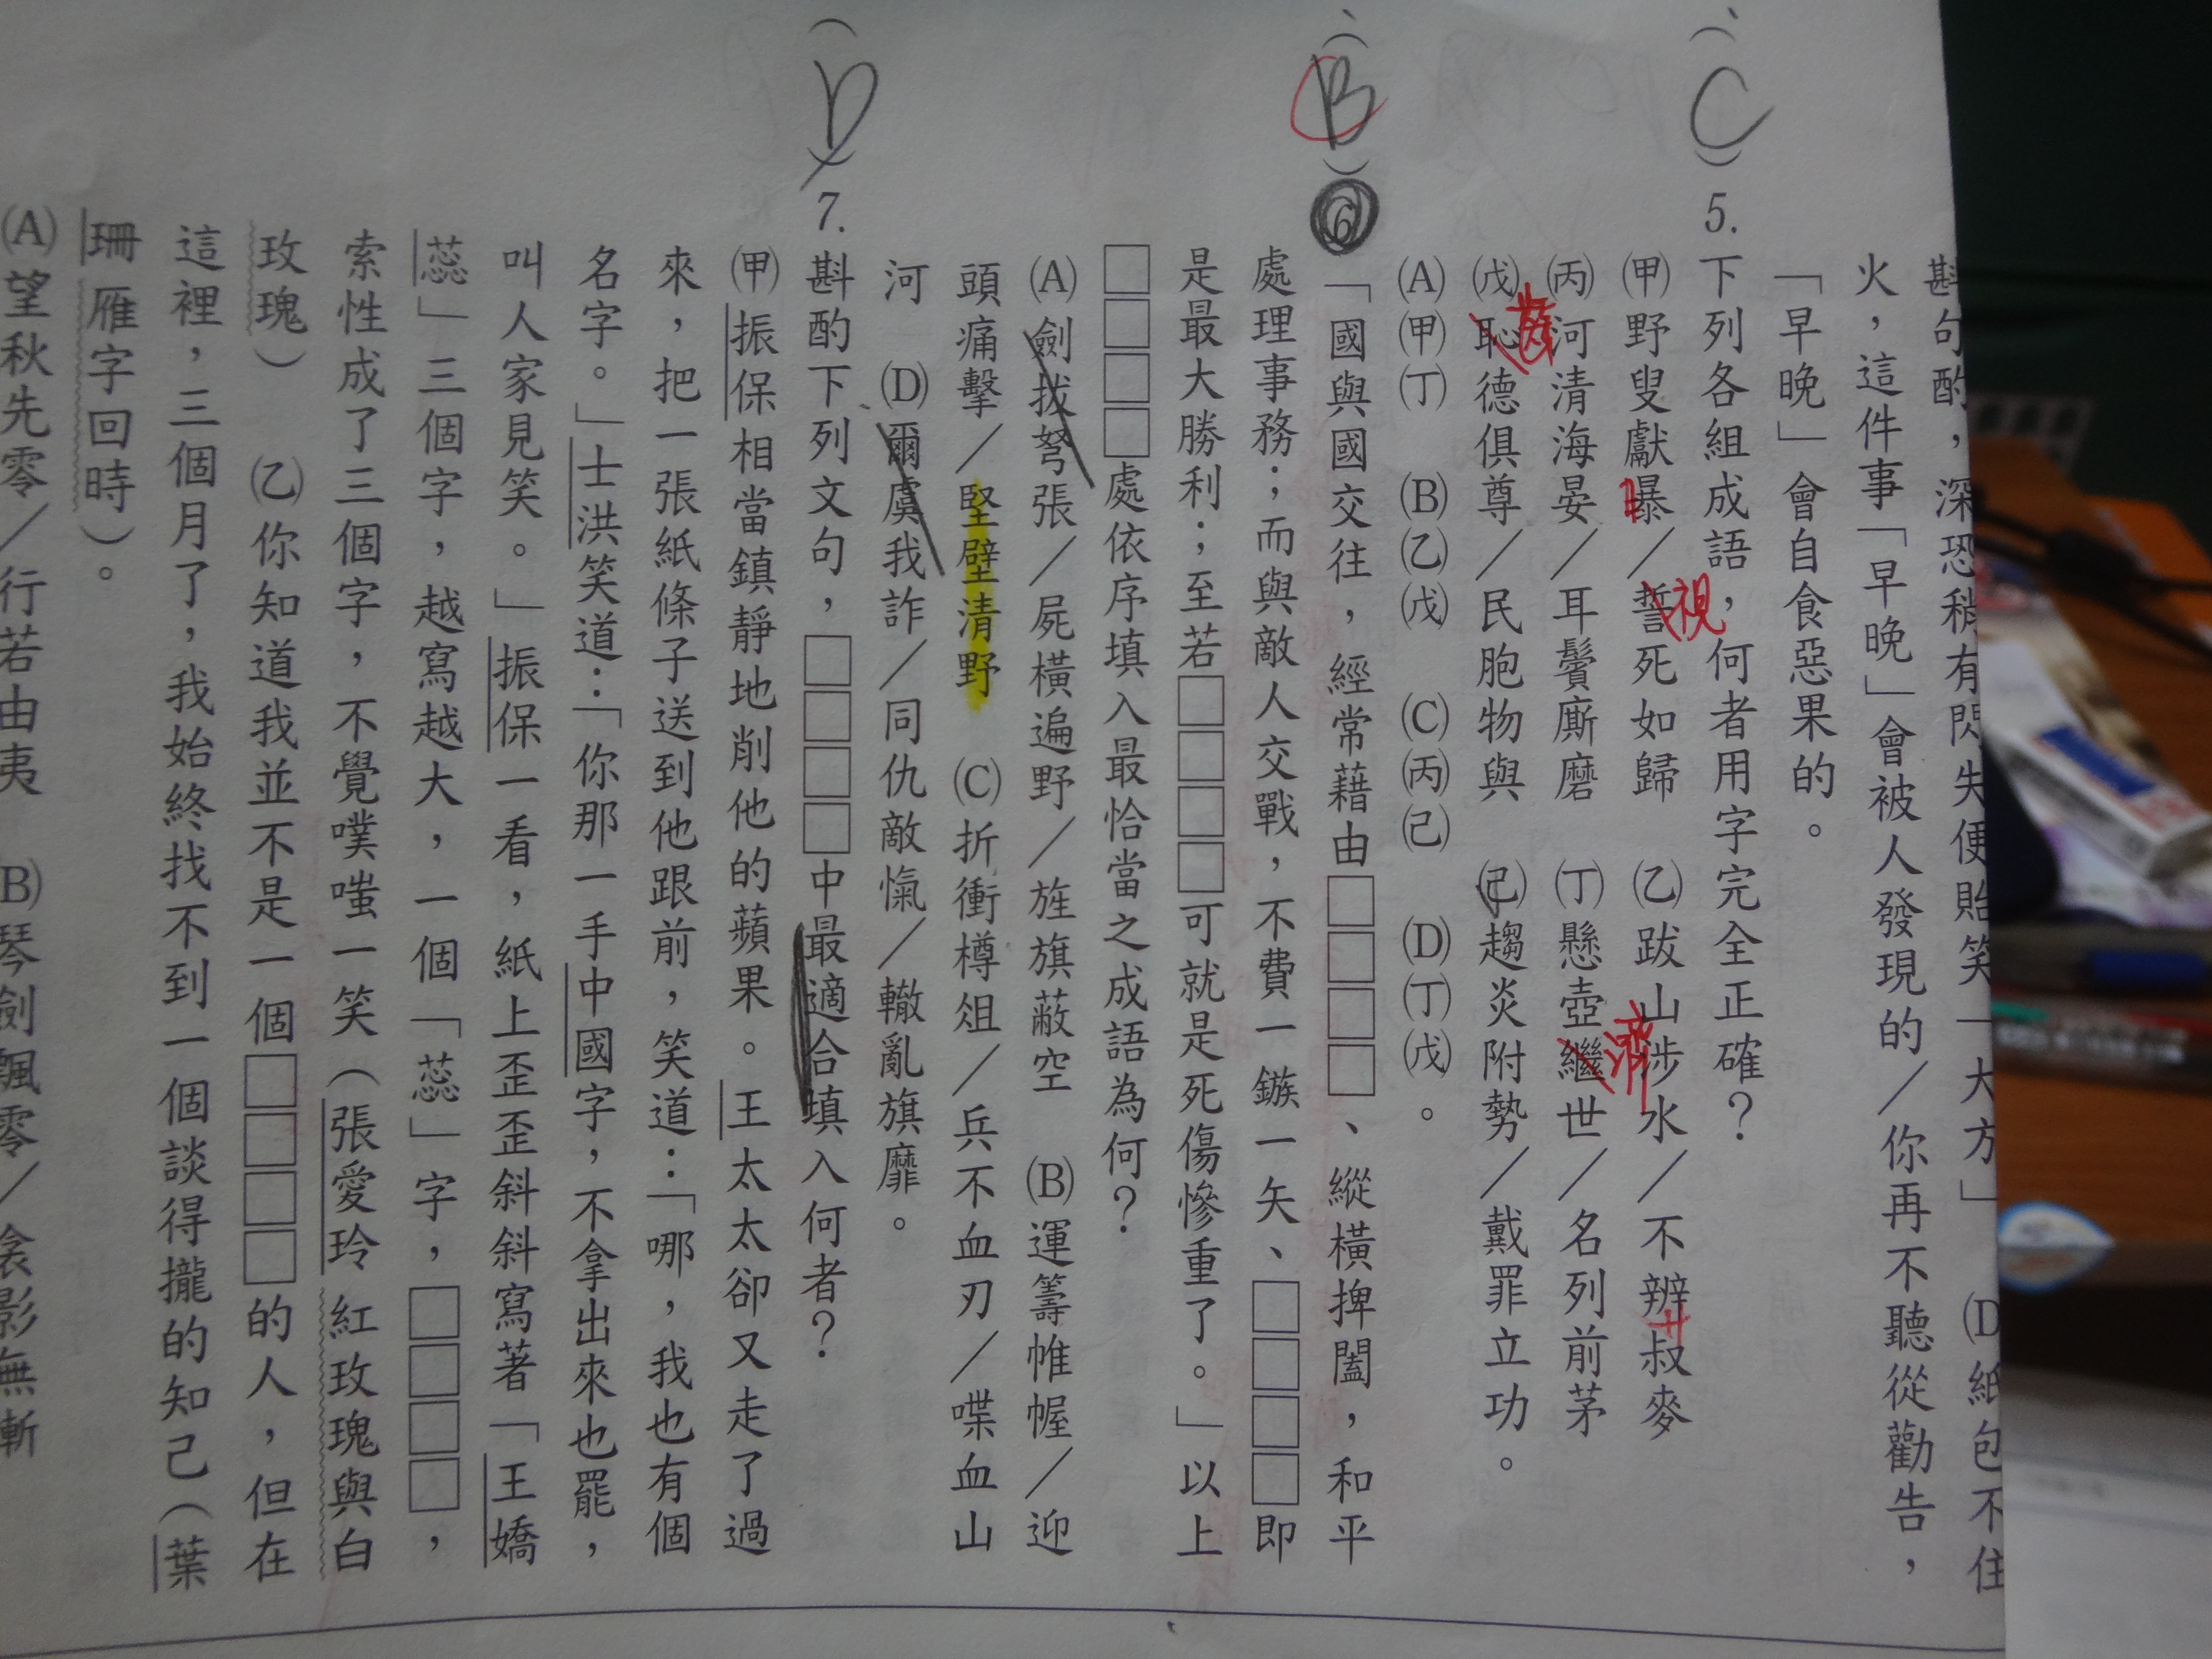 斟句酌，深恐稍有閃失便貽笑「大方」　(D)紙包不住
火，這件事「早晚」會被人發現的／你再不聽從勸告，
「早晚」會自食惡果的。
(C)5.下列各組成語，何者用字完全正確？
(甲)野叟獻曝／誓死如歸　(乙)跋山涉水／不辨叔麥
日
視
廾
(丙)河清海晏／耳鬢廝磨　(丁)懸壺繼世／名列前茅
濟
(戊)恥德俱尊／民胞物與　(己)趨炎附勢／戴罪立功。
齒
(A)(甲)(丁)　(B)(乙)(戊)　(C)(丙)(己)　(D)(丁)(戊)。
(B)6「國與國交往，經常藉由□□□□、縱橫捭闔，和平
處理事務；而與敵人交戰，不費一鏃一矢、□□□□即
是最大勝利；至若□□□□可就是死傷慘重了。」以上
□□□□處依序填入最恰當之成語為何？
(A)劍拔弩張／屍橫遍野／旌旗蔽空　(B)運籌帷幄／迎
頭痛擊／堅壁清野　(C)折衝樽俎／兵不血刃／喋血山
河　(D)爾虞我詐／同仇敵愾／轍亂旗靡。
(D)7.斟酌下列文句，□□□□中最適合填入何者？
(甲)振保相當鎮靜地削他的蘋果。王太太卻又走了過
來，把一張紙條子送到他跟前，笑道：「哪，我也有個
名字。」士洪笑道：「你那一手中國字，不拿出來也罷，
叫人家見笑。」振保一看，紙上歪歪斜斜寫著「王嬌
蕊」三個字，越寫越大，一個「蕊」字，□□□□，
索性成了三個字，不覺噗嗤一笑（張愛玲 紅玫瑰與白
玫瑰）　(乙)你知道我並不是一個□□□□的人，但在
這裡，三個月了，我始終找不到一個談得攏的知己（葉
珊 雁字回時）。
(A)望秋先零／行若由夷　(B)琴劍飄零／衾影無慚